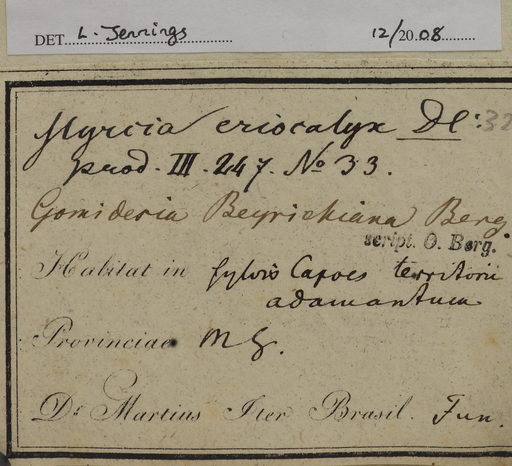 DET. L. Jennings 12/20.08
Myrcia eriocalyx DC: 32
prod. III. 247. No 33.
Gomidesia Beyrichiana Berg
script. O. Berg.
Habitat in sylvis Capoes territorii
adamantum
Provinciae M G.
Dr Martius Iter Brasil. Jun.